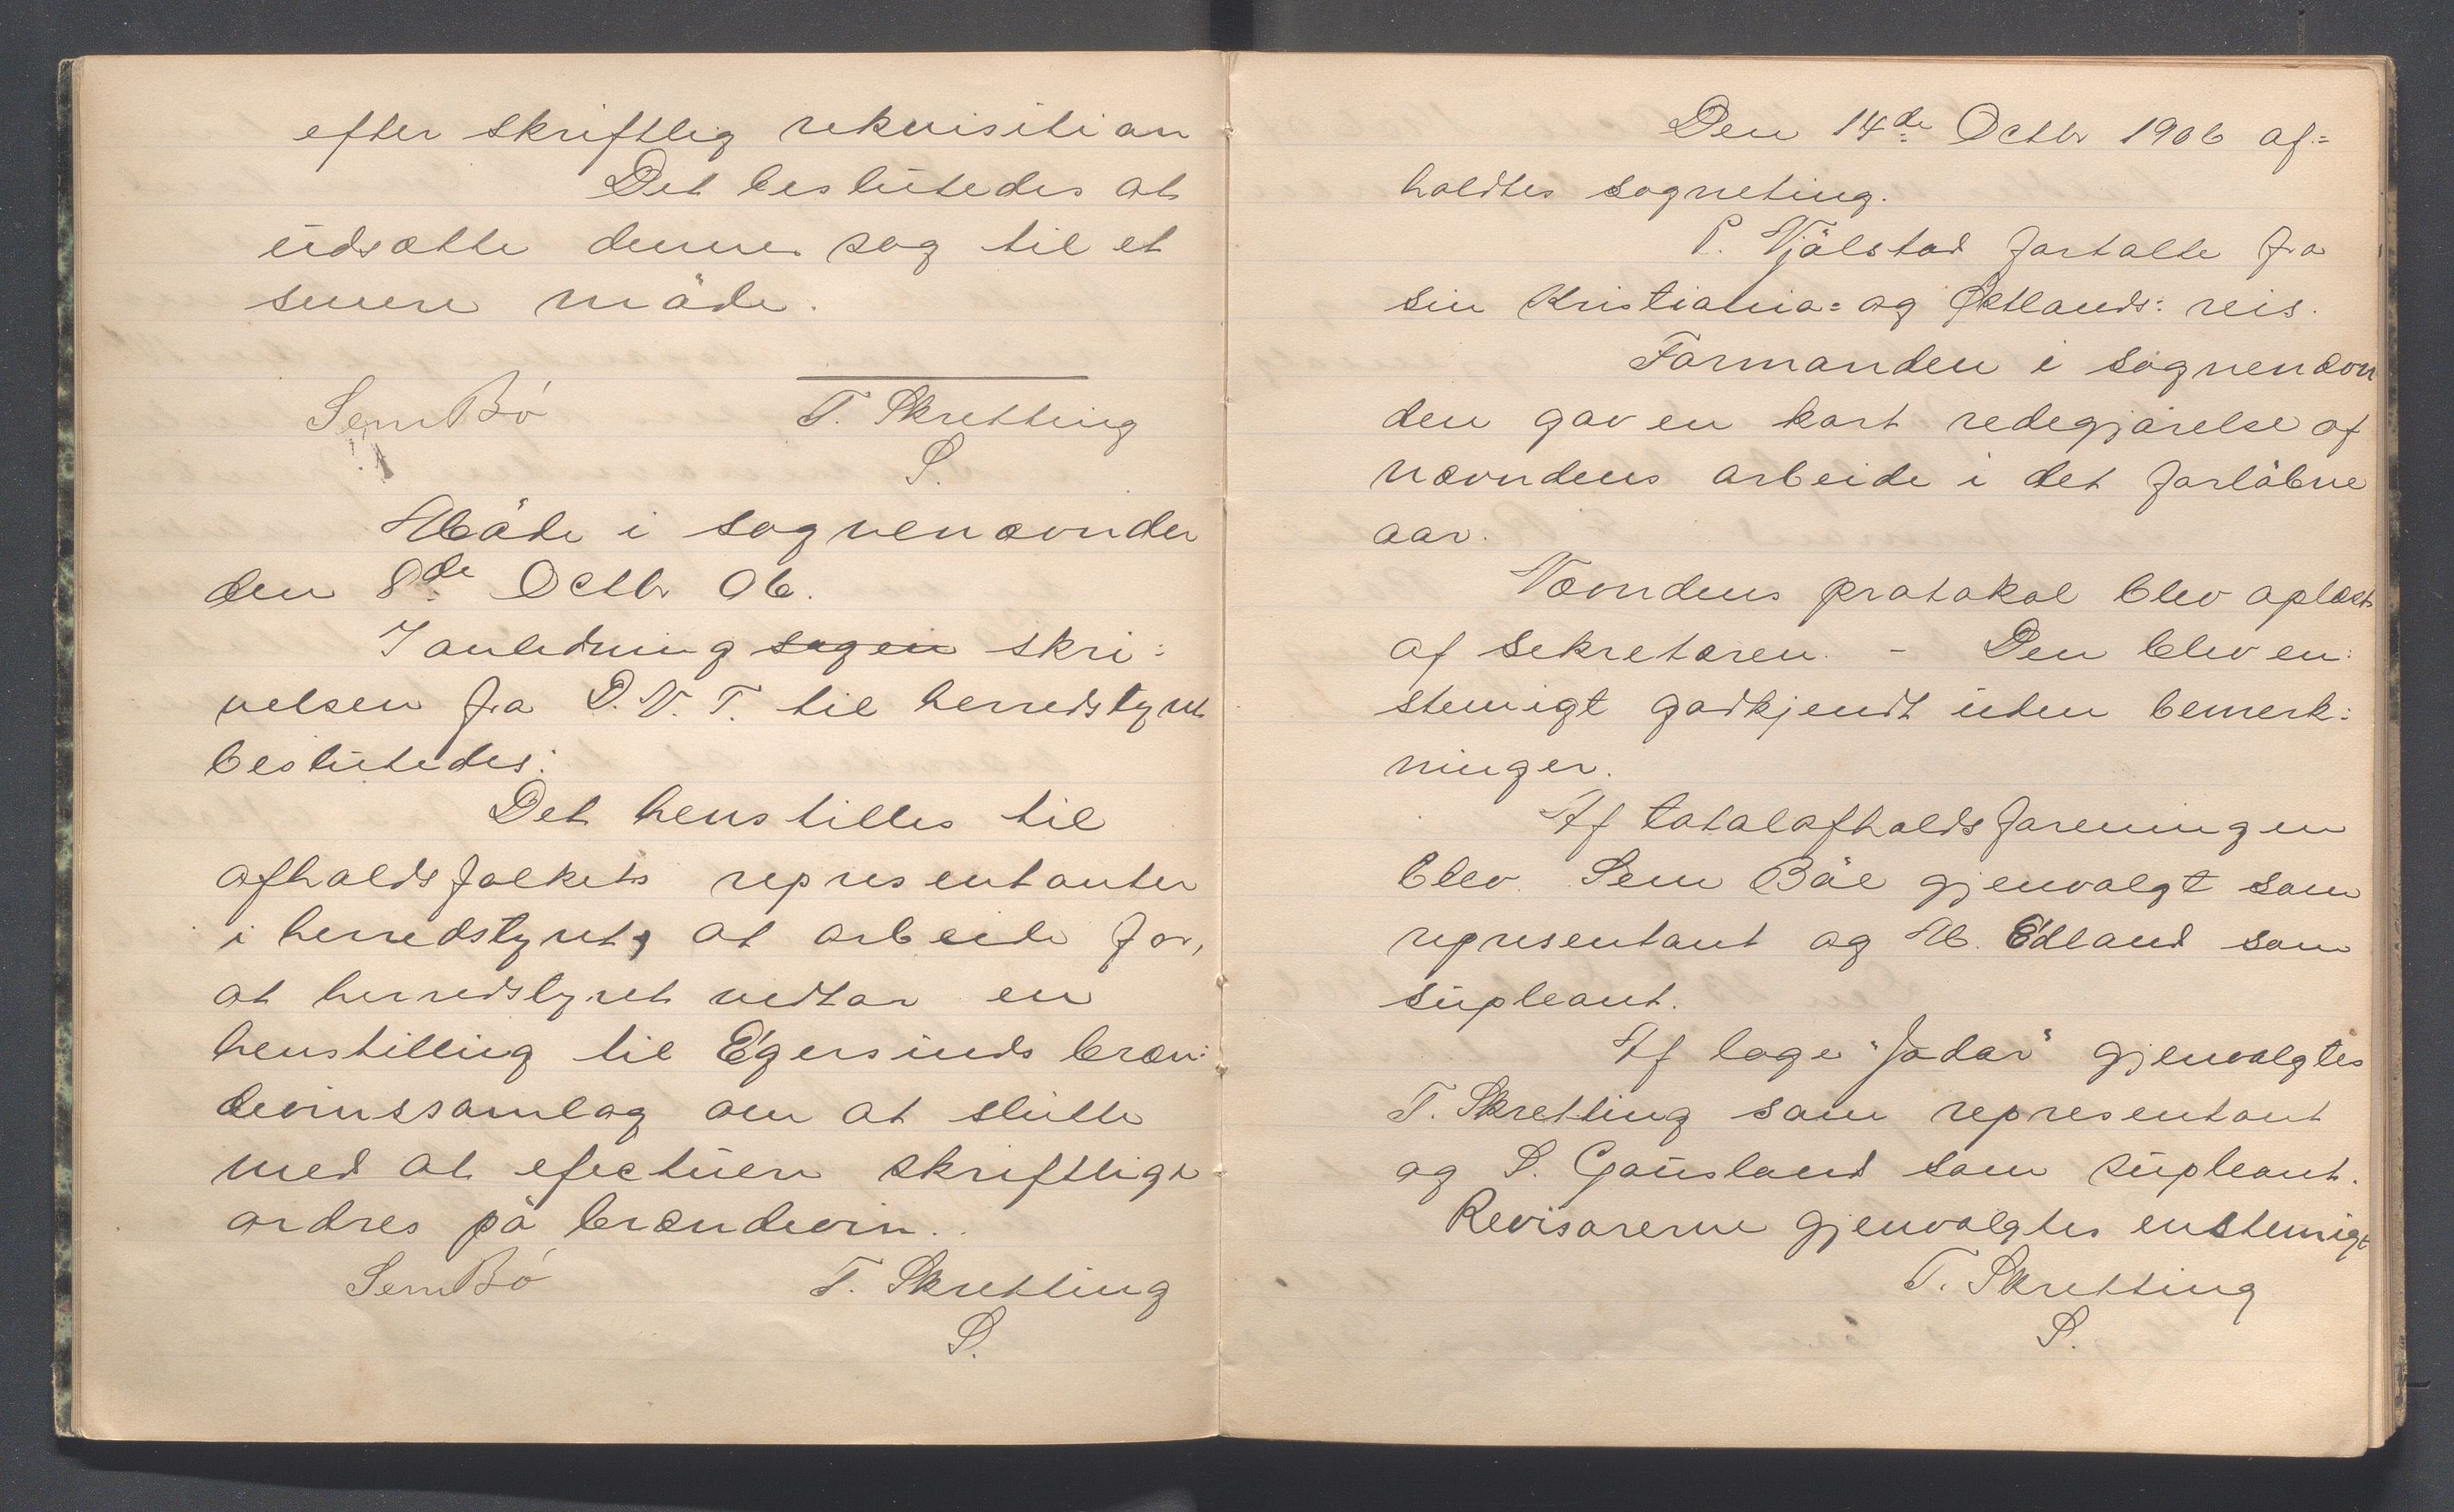 efter skriftlig rekvisition
Det beslutedes at
udsætte denne sag til et
senere möde.
Sem Bö T. Skretting
S.
Möde i sognenævnden
den 8de Octbr 06.
I anledning sagen skri:
velsen fra D.N.T. til herredstyret
beslutedes:
Det henstilles til
afholdsfolkets representanter
i herredstyret, at arbeide for,
at herredstyret vedtar en
henstilling til Egersunds bræn:
devinssamlag om at slutte
med at efectuere skriftlige
ordres på brændevin.
Sem Bö T. Skretting
S.
Den 14de Octbr 1906 af=
holdtes sogneting.
P. Njålstad fortalte fra
sin Kristiania= og Østlands: reis.
Formanden i sognenævn
den gav en kort redegjörelse af
nævndens arbeide i det forlöbne
aar.
Nævndens protokol blev oplæst
af sekretæren. - Den blev en:
stemigt godkjendt uden bemerk:
ninger.
Af totalafholdsforeningen
blev Sem Böe gjenvalgt som
representant og M. Edland som
supleant.
Af loge "Jadar" gjenvalgtes
T. Skretting som representant
og S. Gausland som supleant.
Revisorerne gjenvalgtes enstemigt
T. Skretting
S.